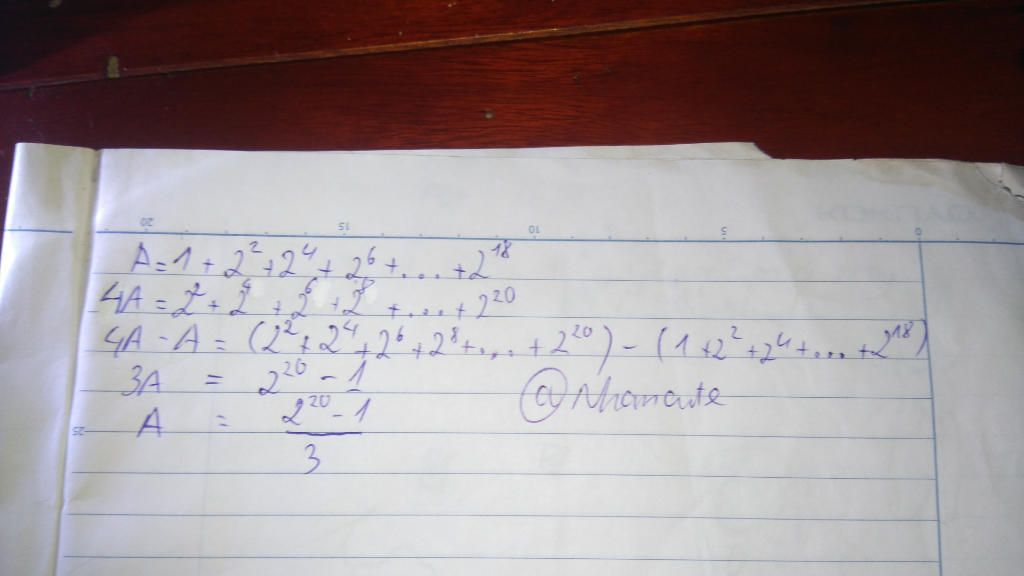 20 15 10 5 0
A = 1 + 2² + 2⁴ + 2⁶ + ... + 2¹⁸
4A = 2² + 2⁴ + 2⁶ + 2⁸ + ... + 2²⁰
4A - A = (2² + 2⁴ + 2⁶ + 2⁸ + ... + 2²⁰) - (1 + 2² + 2⁴ + ... + 2¹⁸)
3A = 2²⁰ - 1
A = 2²⁰ - 1
3
25